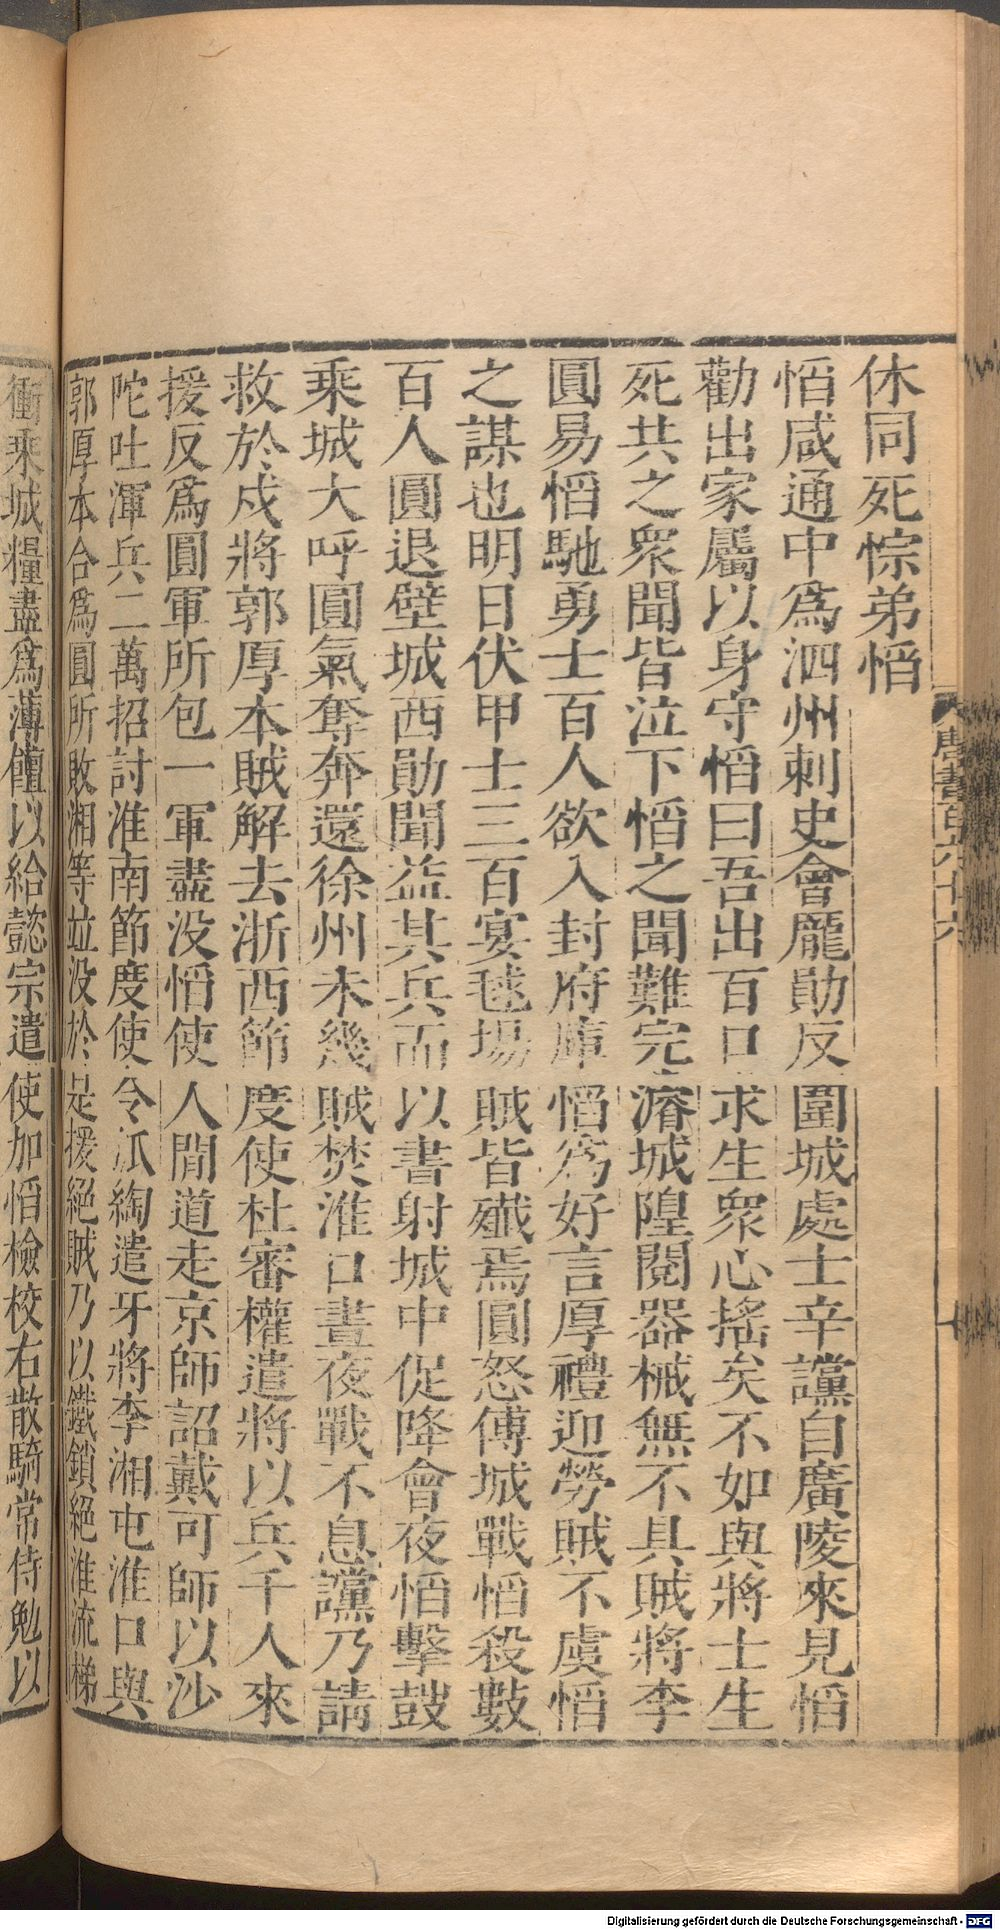 休同死悰弟慆
慆咸通中爲泗州刺史會龐勛反圍城處士辛讜自廣陵來見慆
勸出家屬以身守慆曰吾出百口求生衆心搖矣不如與將士生
死共之衆聞皆泣下慆之聞難完濬城隍閱器械無不具賊將李
圓易慆馳勇士百人欲入封府庫慆爲好言厚禮迎勞賊不虞慆
之謀也明日伏甲士三百宴毬場賊皆殲焉圓怒傅城戰慆殺數
百人圓退壁城西勛聞益其兵而以書射城中促降會夜慆擊鼓
乘城大呼圓氣奪奔還徐州未幾賊焚淮口晝夜戰不息讜乃請
救於戍將郭厚本賊解去浙西節度使杜審權遣將以兵千人來
援反爲圓軍所包一軍盡没慆使人間道走京師詔戴可師以沙
陀吐渾兵二萬招討淮南節度使令狐綯遣牙將李湘屯淮口與
郭厚本合爲圓所敗湘等竝没於是援絕賊乃以鐵鎖絕淮流梯
衝乘城糧盡爲薄饘以給懿宗遣使加慆檢校右散騎常侍勉以
唐書百六十六
Digitalisierung gefördert durch die Deutsche Forschungsgemeinschaft - DFG